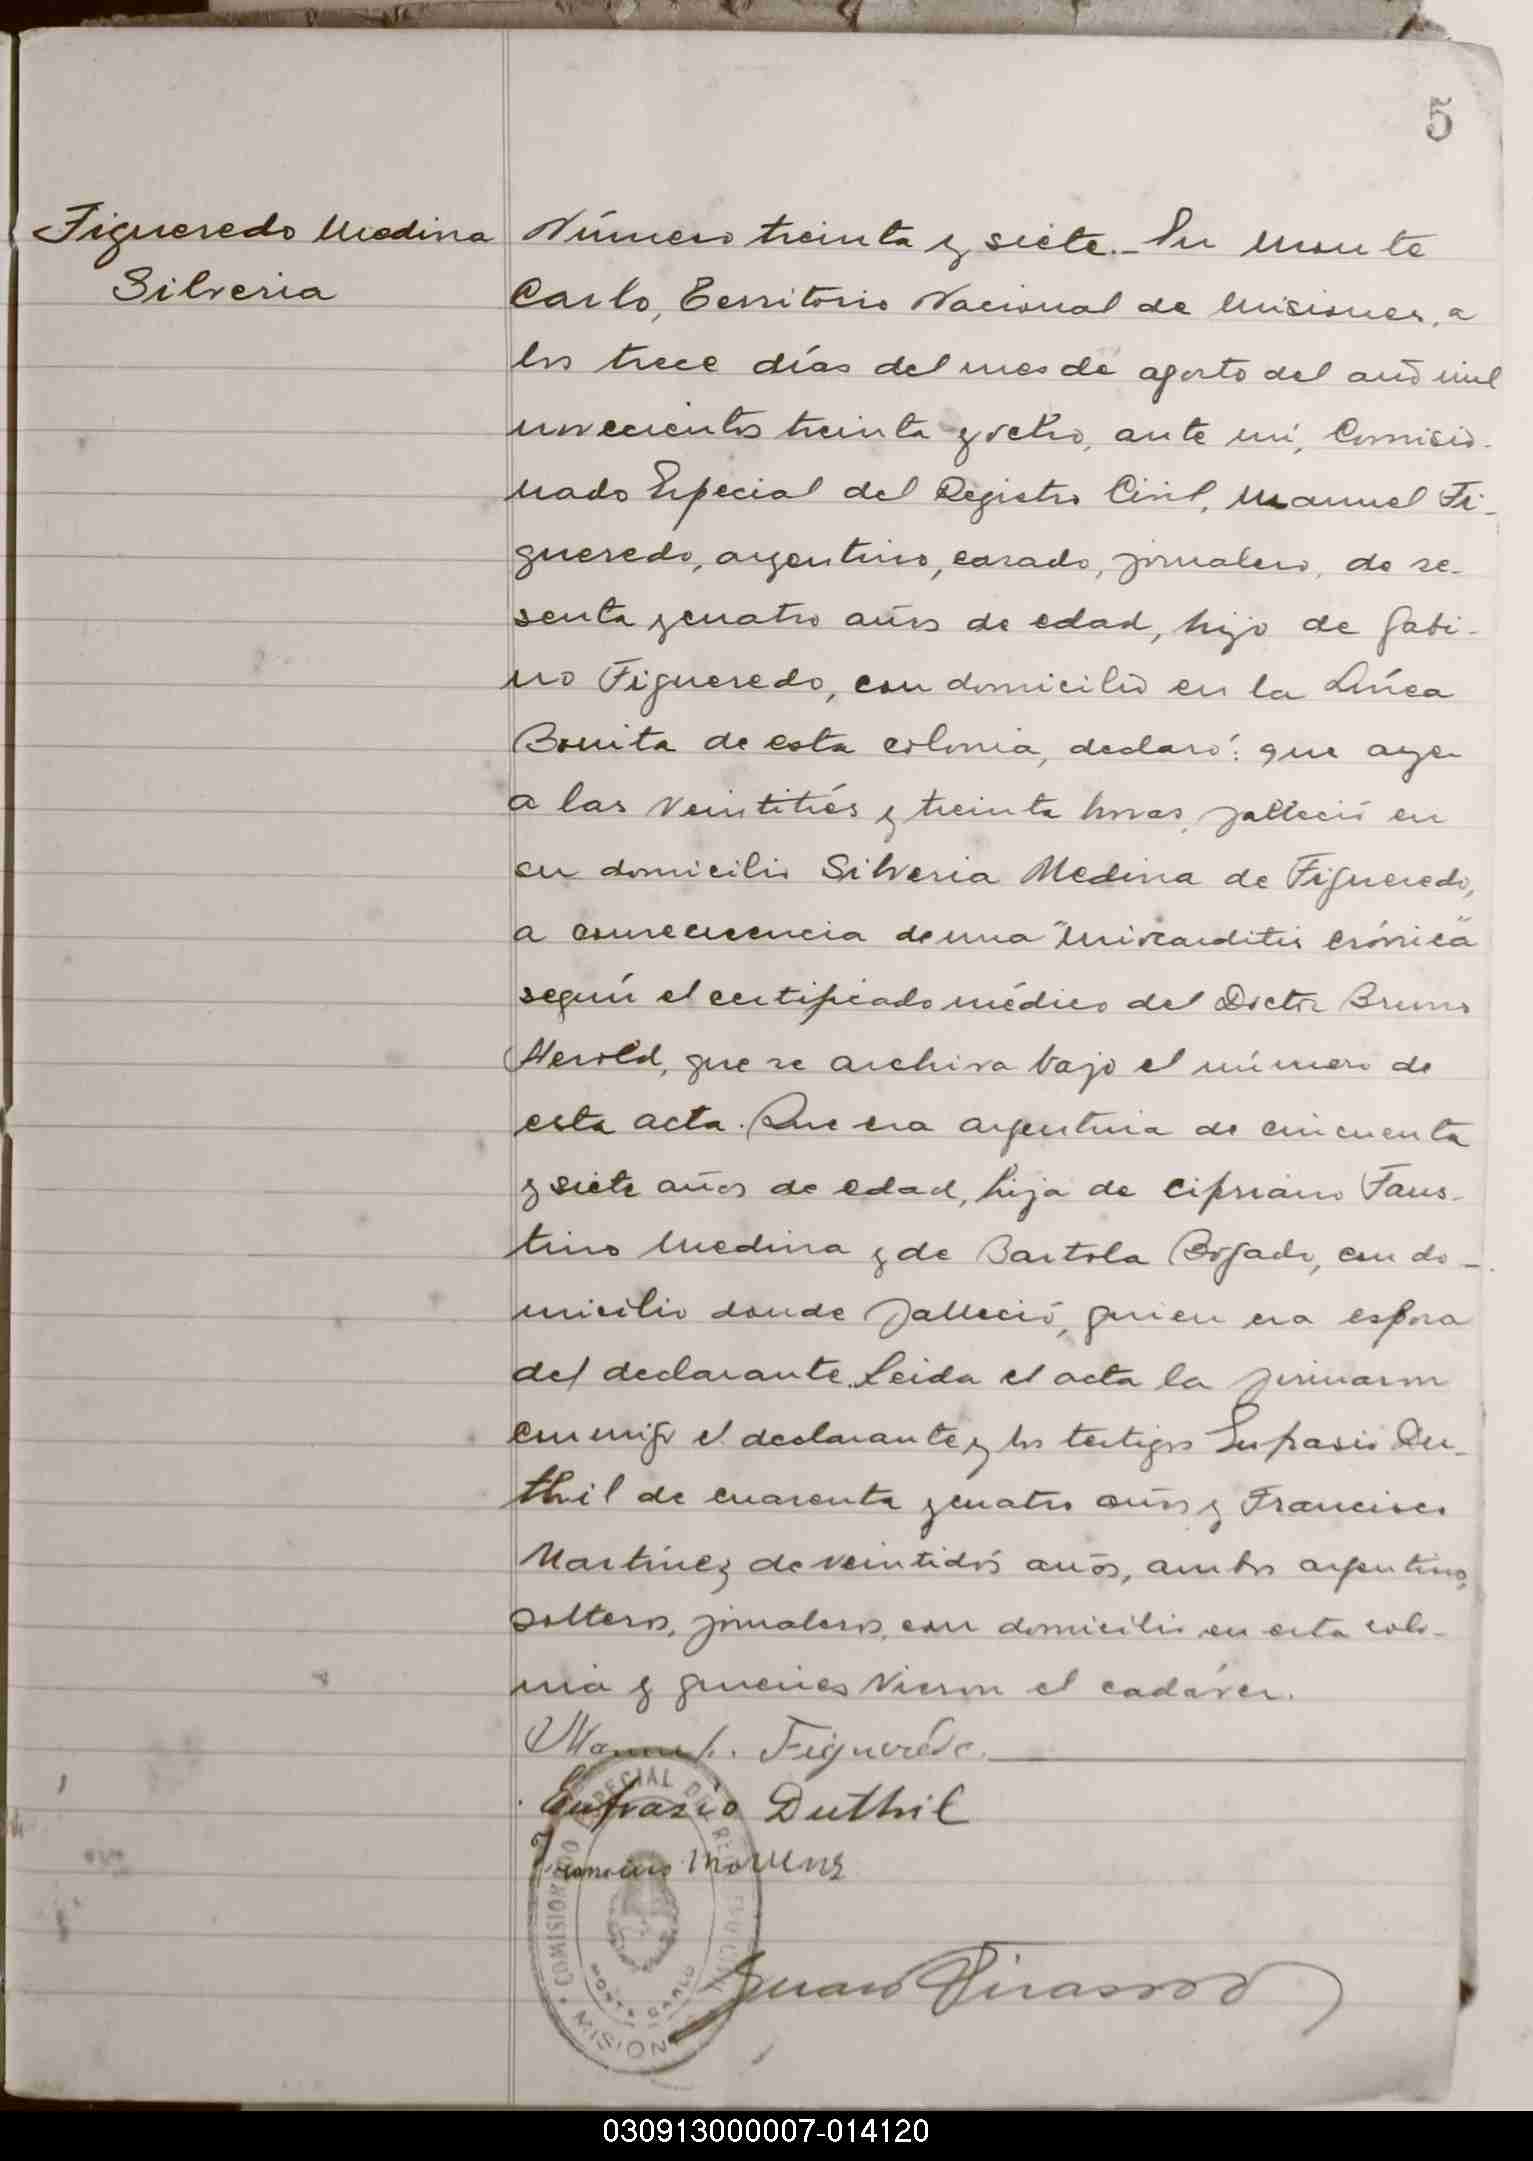 5
Figueredo Medina
Silveria
Número treinta y siete.- En Monte
Carlo, Territorio Nacional de Misiones, a
los trece días del mes de agosto del año mil
novecientos treinta y ocho, ante mí, Comisio-
nado Especial del Registro Civil, Manuel Fi-
gueredo, argentino, casado, jornalero, de se-
senta y cuatro años de edad, hijo de Gabi-
no Figueredo, con domicilio en la Línea
Bonita de esta colonia, declaró: que ayer
a las veintitrés y treinta horas, falleció en
su domicilio Silveria Medina de Figueredo,
a consecuencia de una "Miocarditis crónica"
según el certificado médico del Doctor Bruno
Herold, que se archiva bajo el número de
esta acta. Que era argentina de cincuenta
y siete años de edad, hija de Cipriano Faus-
tino Medina y de Bartola Bogado, con do-
micilio donde falleció, quien era esposa
del declarante. Leida el acta la firmaron
conmigo el declarante y los testigos Eufrasio Du-
thil de cuarenta y cuatro años y Francisco
Martínez de veintidós años, ambos argentinos,
solteros, jornaleros, con domicilio en esta colo-
nia y quienes vieron el cadáver.
Manuel. Figueredo.
Eufrasio Duthil
COMISIONADO ESPECIAL DEL REGISTRO CIVIL
MONTE CARLO
MISIONES
Juan
030913000007-014120